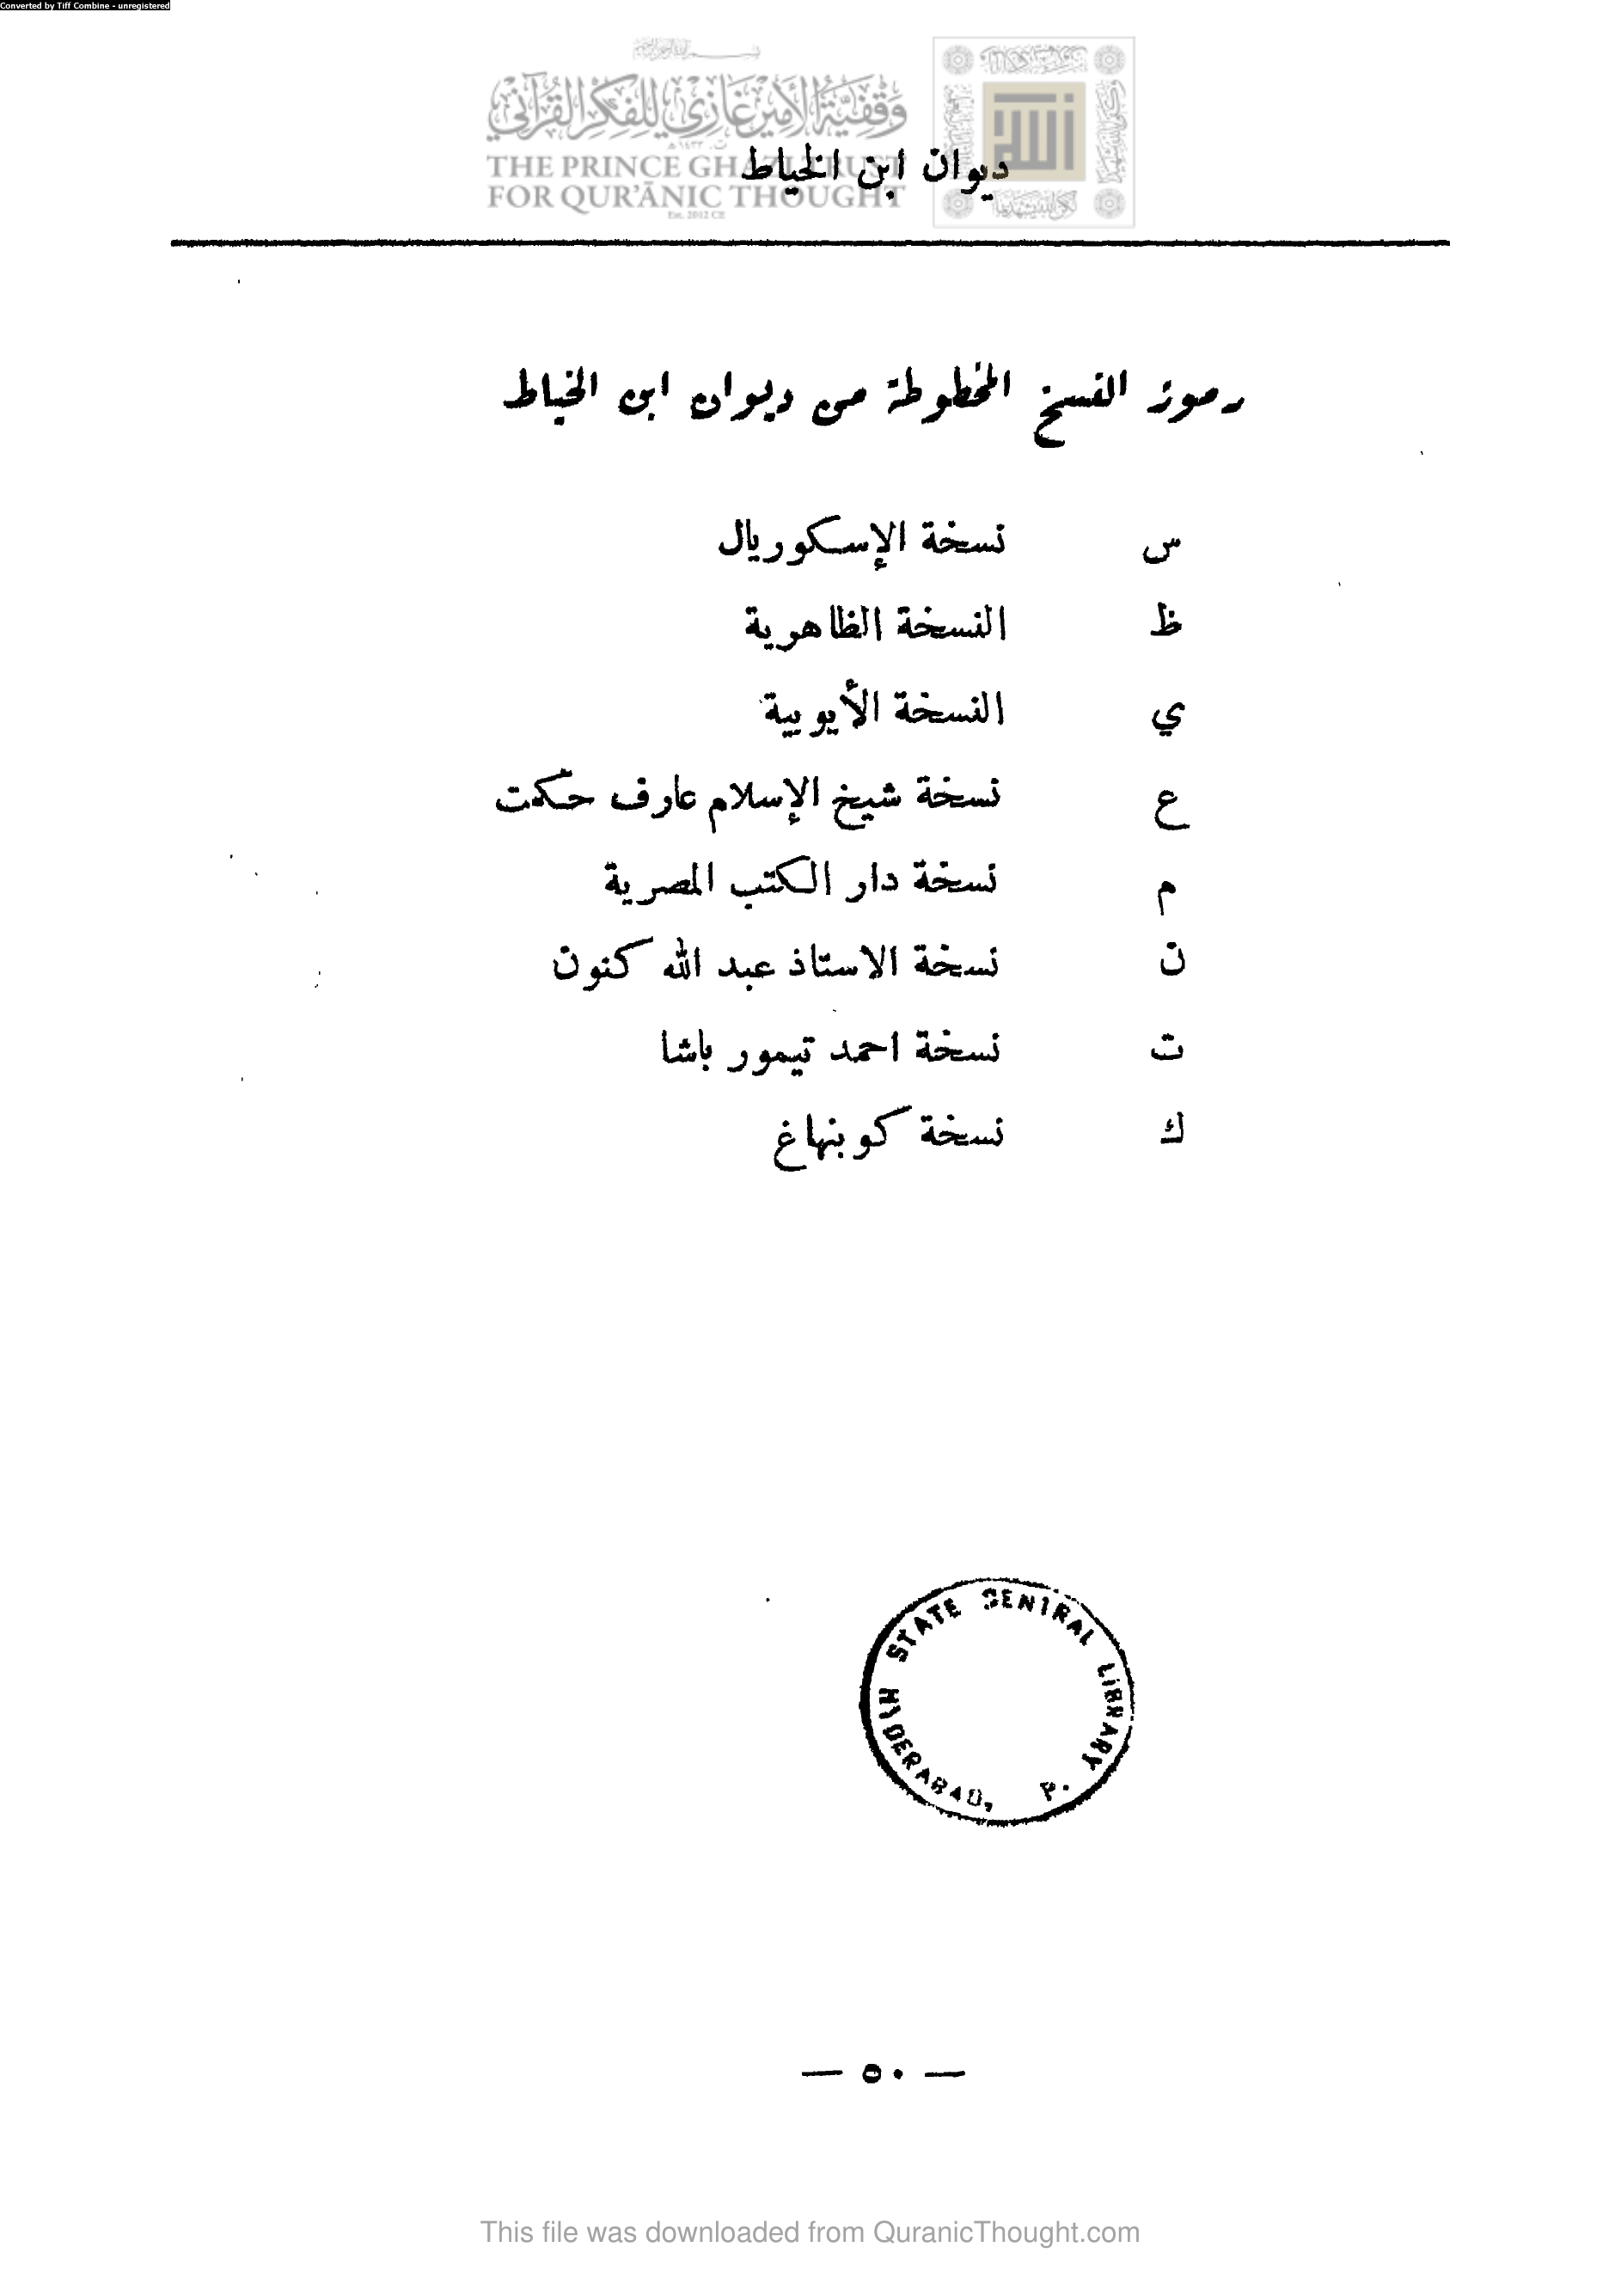 Converted by Tiff Combine - unregistered
وقفية الأمير غازي للفكر القرآني
THE PRINCE GHAZI TRUST
FOR QUR'ĀNIC THOUGHT
Est. 2012 CE
ديوان ابن الخياط
رموز النسخ المخطوطة من ديوان ابن الخياط
س نسخة الإسكوريال
ظ النسخة الظاهرية
ي النسخة الأيوبية
ع نسخة شيخ الإسلام عارف حكمت
م نسخة دار الكتب المصرية
ن نسخة الاستاذ عبد الله كنون
ت نسخة احمد تيمور باشا
ك نسخة كوبنهاغ
STATE CENTRAL LIBRARY
HYDERABAD, P.
— ٥٠ —
This file was downloaded from QuranicThought.com